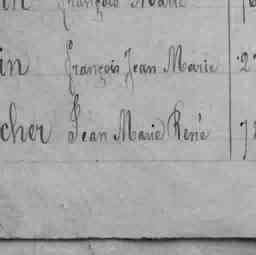 in François Marie
in François Jean Marie 2
cher Jean Marie René 7